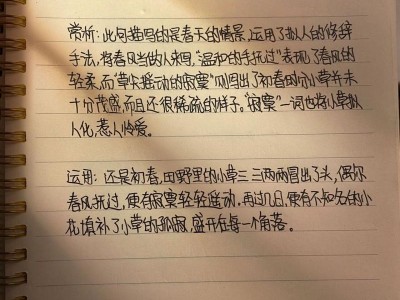 赏析：此句描写的是春天的情景，运用了拟人的修辞
手法，将春风当做人来写，“温和的手抚过”表现了春风的
轻柔，而“草尖摇动的寂寞”则写出了初春时分小草并未
十分茂盛，而且还很稀疏的样子。“寂寞”一词也将小草拟
人化，惹人怜爱。
运用：还是初春，田野里的小草三三两两冒出了头，偶尔
春风抚过，便有寂寞轻轻摇动，再过几日，便有不知名的小
花填补了小草的孤寂，盛开在每一个角落。